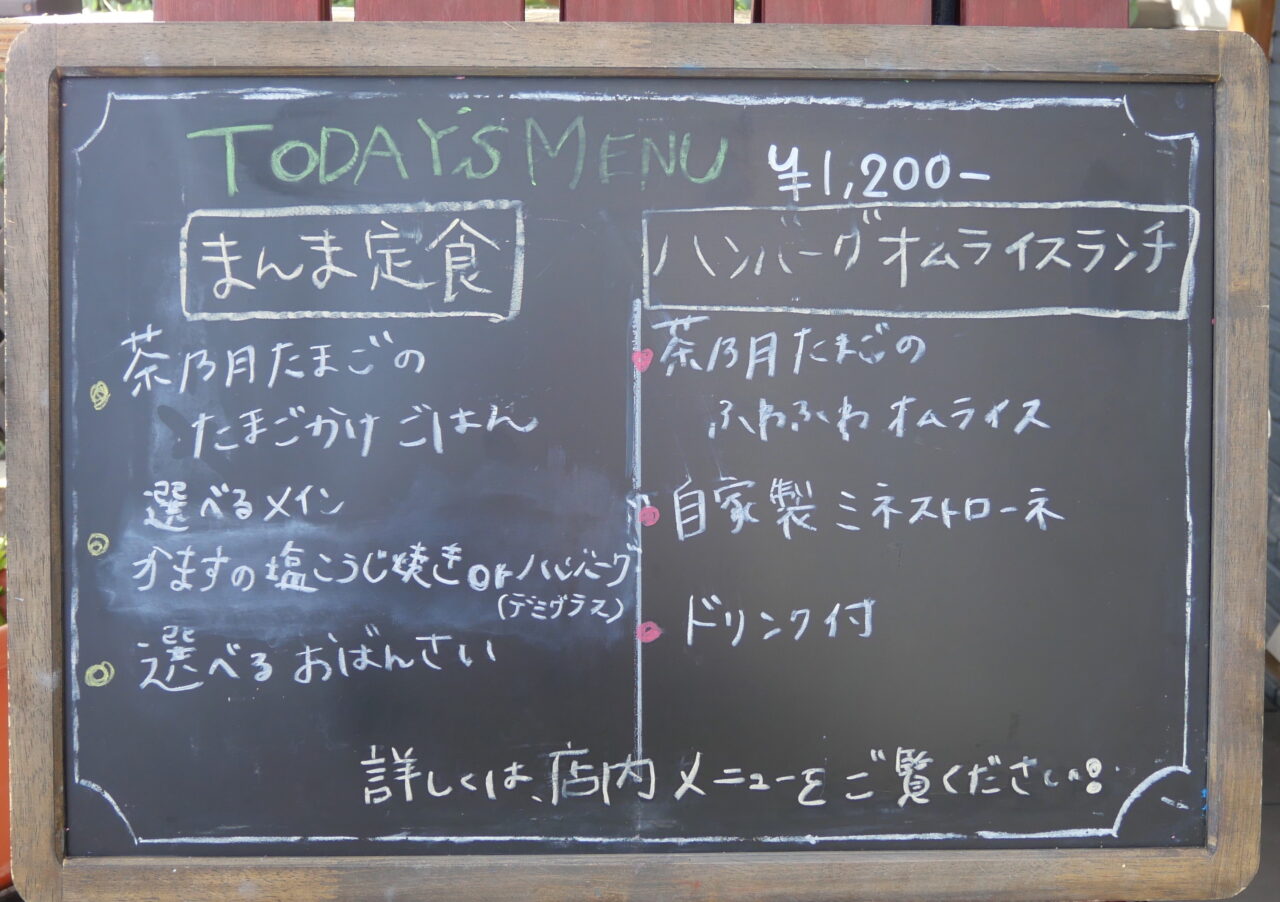 TODAY'S MENU
¥1,200-
まんま定食
茶乃月たまごの
たまごかけごはん
選べるメイン
かますの塩こうじ焼き or ハンバーグ
(デミグラス)
選べる おばんさい
ハンバーグオムライスランチ
茶乃月たまごの
ふわふわ オムライス
自家製 ミネストローネ
ドリンク付
詳しくは、店内メニューをご覧ください!